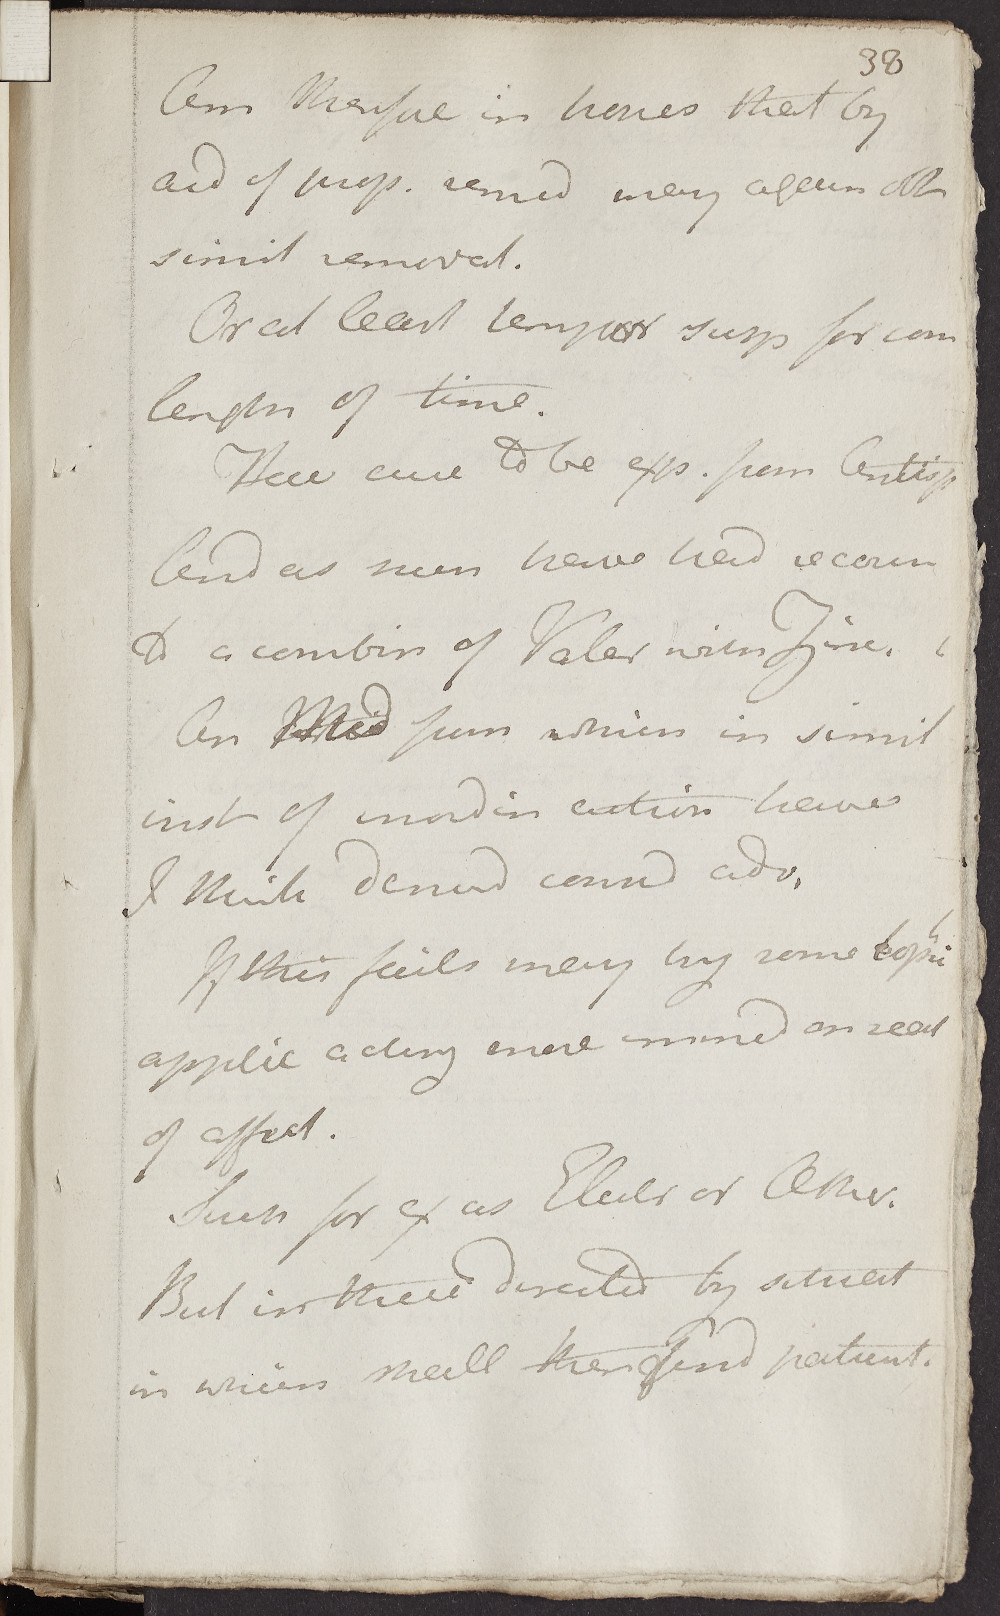 38
Am therfore in hopes that by
aid of prop. remed may again obt
simil removal.
Or at least tempor susp for som
length of time.
These ame to be exp. from Antisp
And as such have had recours
to a combin of Valer with Zinc.
An Med from which in simil
inst of inordin action have
I think deriv'd consid adv.
If this fails may try some topic
applic acting more immed on seat
of affect.
Such for ex as Electr or Æther.
But in these directed by situat
in which shall then find patient.